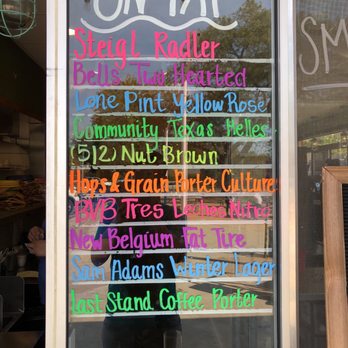 ON TAP
Steigl Radler
Bells Two Hearted
Lone Pint Yellow Rose
Community Texas Helles
(512) Nut Brown
Hops & Grain Porter Culture
BVB Tres Leches
New Belgium Fat Tire
Sam Adams Winter Lager
Last Stand Coffee Porter
SM